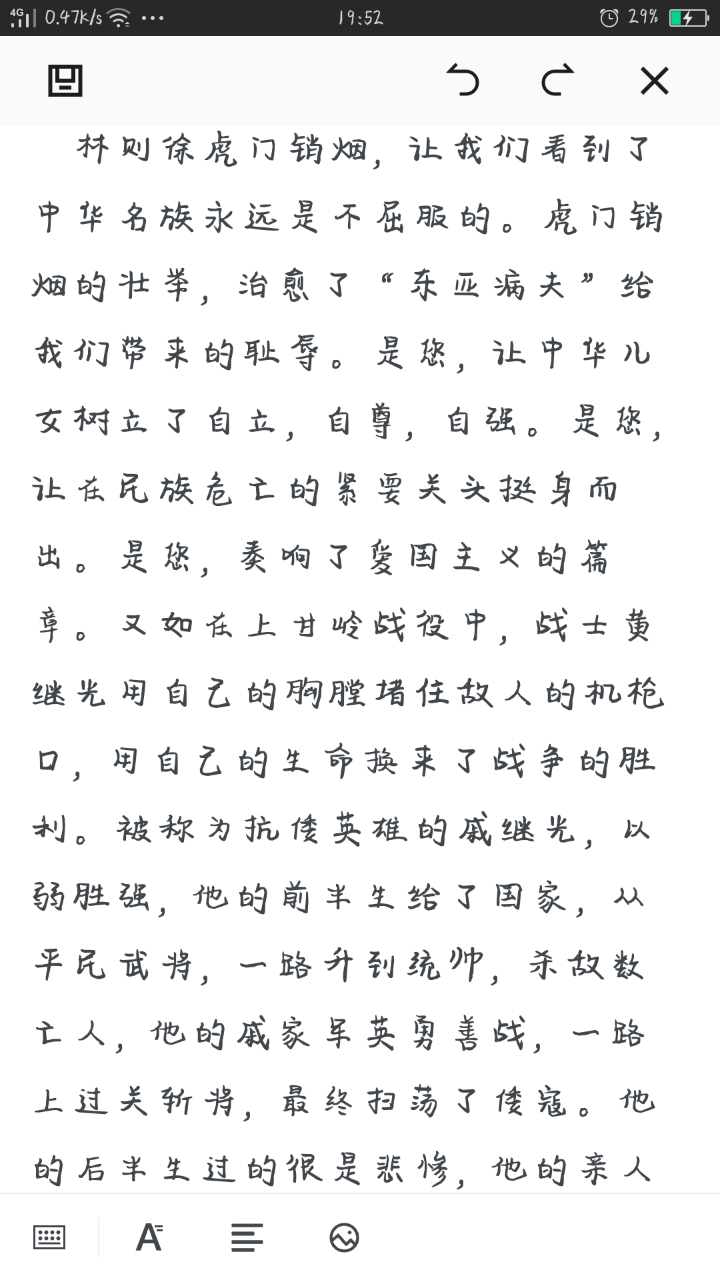 4G 0.47K/s 19:52 29%
林则徐虎门销烟，让我们看到了
中华名族永远是不屈服的。虎门销
烟的壮举，治愈了“东亚病夫”给
我们带来的耻辱。是您，让中华儿
女树立了自立，自尊，自强。是您，
让在民族危亡的紧要关头挺身而
出。是您，奏响了爱国主义的篇
章。又如在上甘岭战役中，战士黄
继光用自己的胸膛堵住敌人的机枪
口，用自己的生命换来了战争的胜
利。被称为抗倭英雄的戚继光，以
弱胜强，他的前半生给了国家，从
平民武将，一路升到统帅，杀敌数
亡人，他的戚家军英勇善战，一路
上过关斩将，最终扫荡了倭寇。他
的后半生过的很是悲惨，他的亲人
A